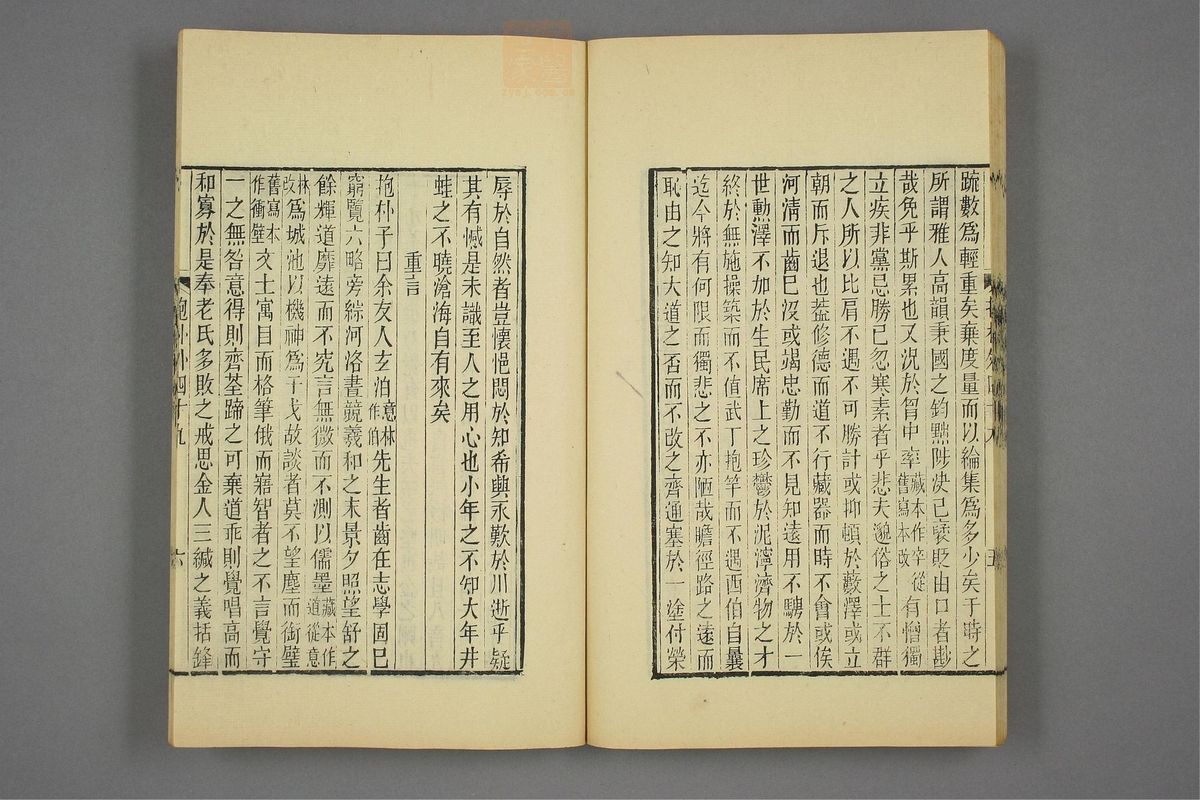 疏數爲輕重矣棄度量而以綸集爲多少矣于時之
所謂雅人高韻秉國之鈞黜陟決己褒貶由口者尠
哉免乎斯累也又況於胷中率藏本作卒從舊寫本改有憎獨
立疾非黨忌勝己忽寒素者乎悲夫邈俗之士不羣
之人所以比肩不遇不可勝計或抑頓於藪澤或立
朝而斥退也蓋修德而道不行藏器而時不會或俟
河淸而齒已沒或竭忠勤而不見知遠用不騁於一
世勲澤不加於生民席上之珍鬱於泥濘濟物之才
終於無施操築而不值武丁抱竿而不遇西伯自曩
迄今將有何限而獨悲之不亦陋哉瞻徑路之遠而
恥由之知大道之否而不改之齊通塞於一塗付榮
五
辱於自然者豈懷悒悶於知希興永歎於川逝乎疑
其有憾是未識至人之用心也小年之不知大年井
蛙之不曉滄海自有來矣
重言
抱朴子曰余友人玄泊意林作伯先生者齒在志學固已
窮覽六略旁綜河洛晝競羲和之末景夕照望舒之
餘輝道靡遠而不究言無微而不測以儒墨藏本作道從意
林改爲城池以機神爲干戈故談者莫不望塵而銜璧
舊寫本作衝壁文士寓目而格筆俄而寤智者之不言覺守
一之無咎意得則齊荃蹄之可棄道乖則覺唱高而
和寡於是奉老氏多敗之戒思金人三緘之義括鋒
抱朴外四十九
六